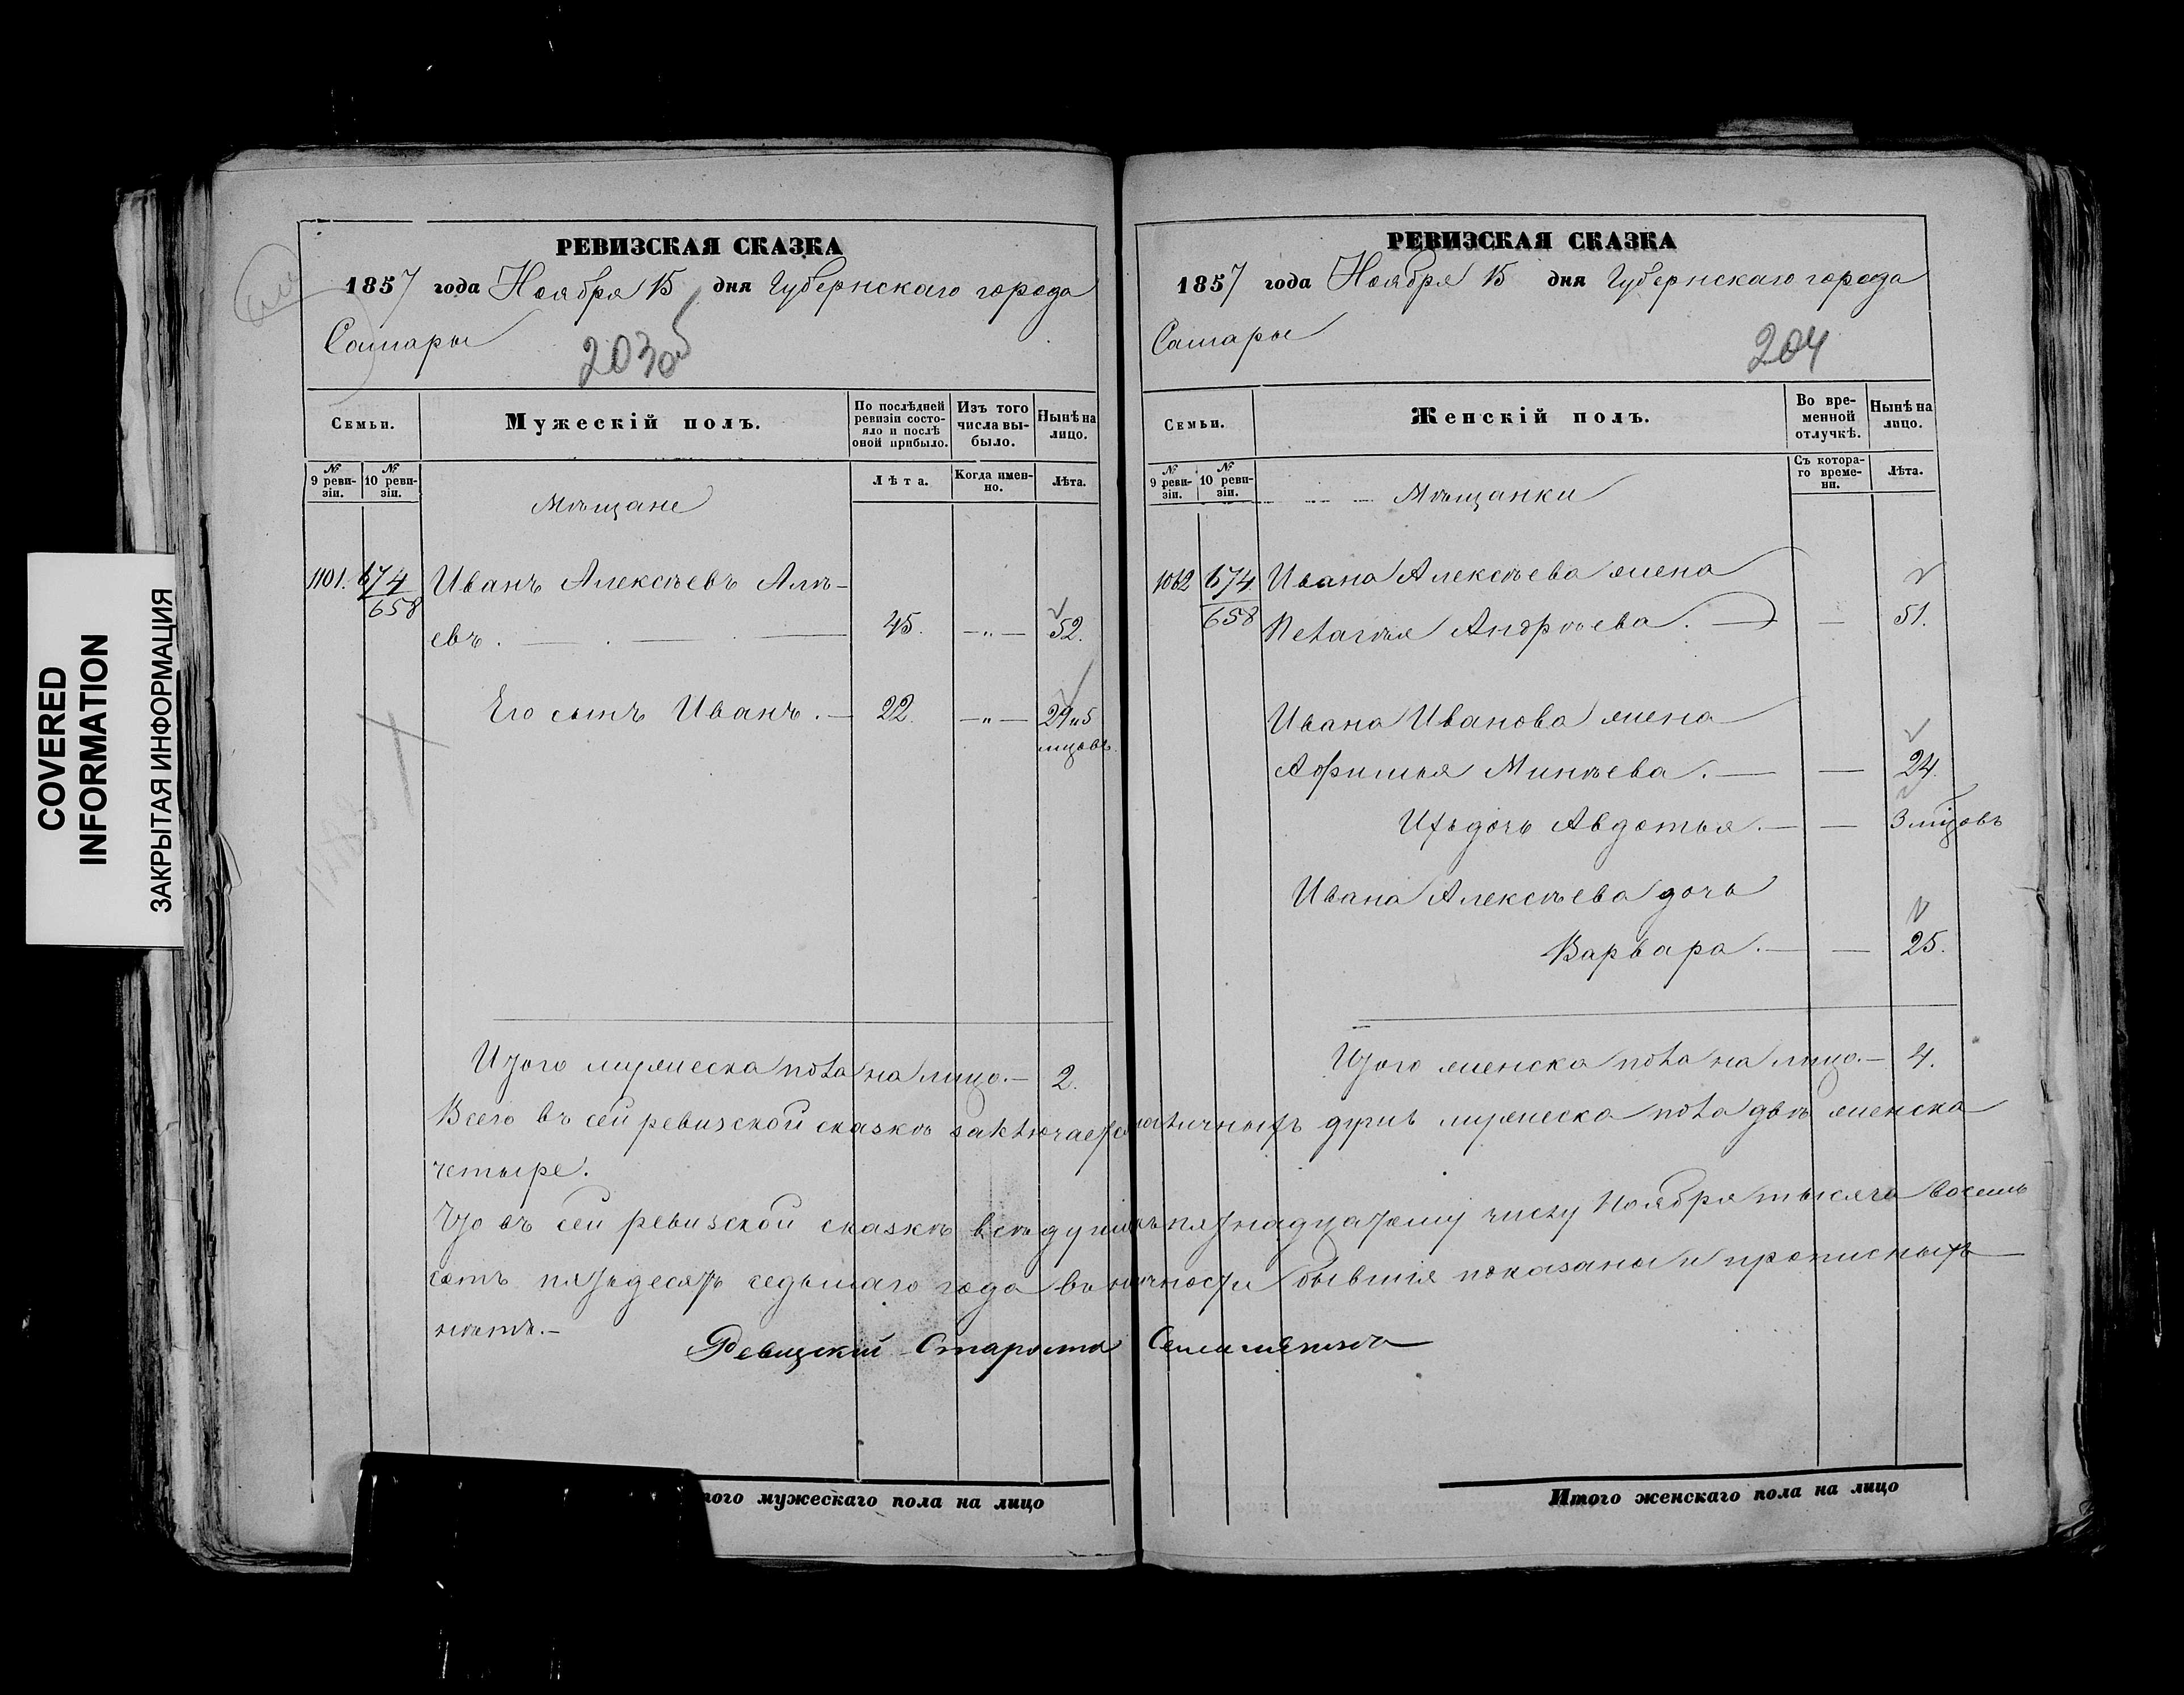 COVERED
INFORMATION
ЗАКРЫТАЯ ИНФОРМАЦИЯ
РЕВИЗСКАЯ СКАЗКА
1857 года Ноября 15 дня Губернскаго города
Самары
203 об
Семьи.
Мужескiй полъ.
По послѣдней ревизiи состояло и послѣ оной прибыло.
Изъ того числа выбыло.
Нынѣ на лицо.
№ 9 ревизiи.
№ 10 ревизiи.
Мѣщане
Лѣта.
Когда именно.
Лѣта.
1101. 674 Иванъ Алексѣевъ
658
евъ. 45. —„— 52.
Его сынъ Иванъ. — 22. —„— 29 и 5
мцовъ.
Итого мужеска пола на лицо. — 2.
РЕВИЗСКАЯ СКАЗКА
1857 года Ноября 15 дня Губернскаго города
Самары
204
Семьи.
Женскiй полъ.
Во временной отлучкѣ.
Нынѣ на лицо.
№ 9 ревизiи.
№ 10 ревизiи.
Мѣщанки
Съ котораго времени.
Лѣта.
1062 674 Ивана Алексѣева жена
658 Пелагѣя Андрѣева. — — 51.
Ивана Иванова жена
Афимья Минѣева. — — 24.
Ихъ дочь Авдотья. — — 3 мцовъ
Ивана Алексѣева дочь
Варвара. — — 25.
Итого женска пола на лицо. — 4.
Всего въ сей ревизской сказкѣ заключается наличныхъ душъ мужеска пола двѣ женска
четыре.
Что въ сей ревизской сказкѣ всѣ души къ пятнадцатому числу Ноября тысяча восемь
сотъ пятьдесятъ седьмаго года въ наличности бывшiя показаны и прописныхъ
нѣтъ. —
Ревизскiй Староста
того мужескаго пола на лицо
Итого женскаго пола на лицо